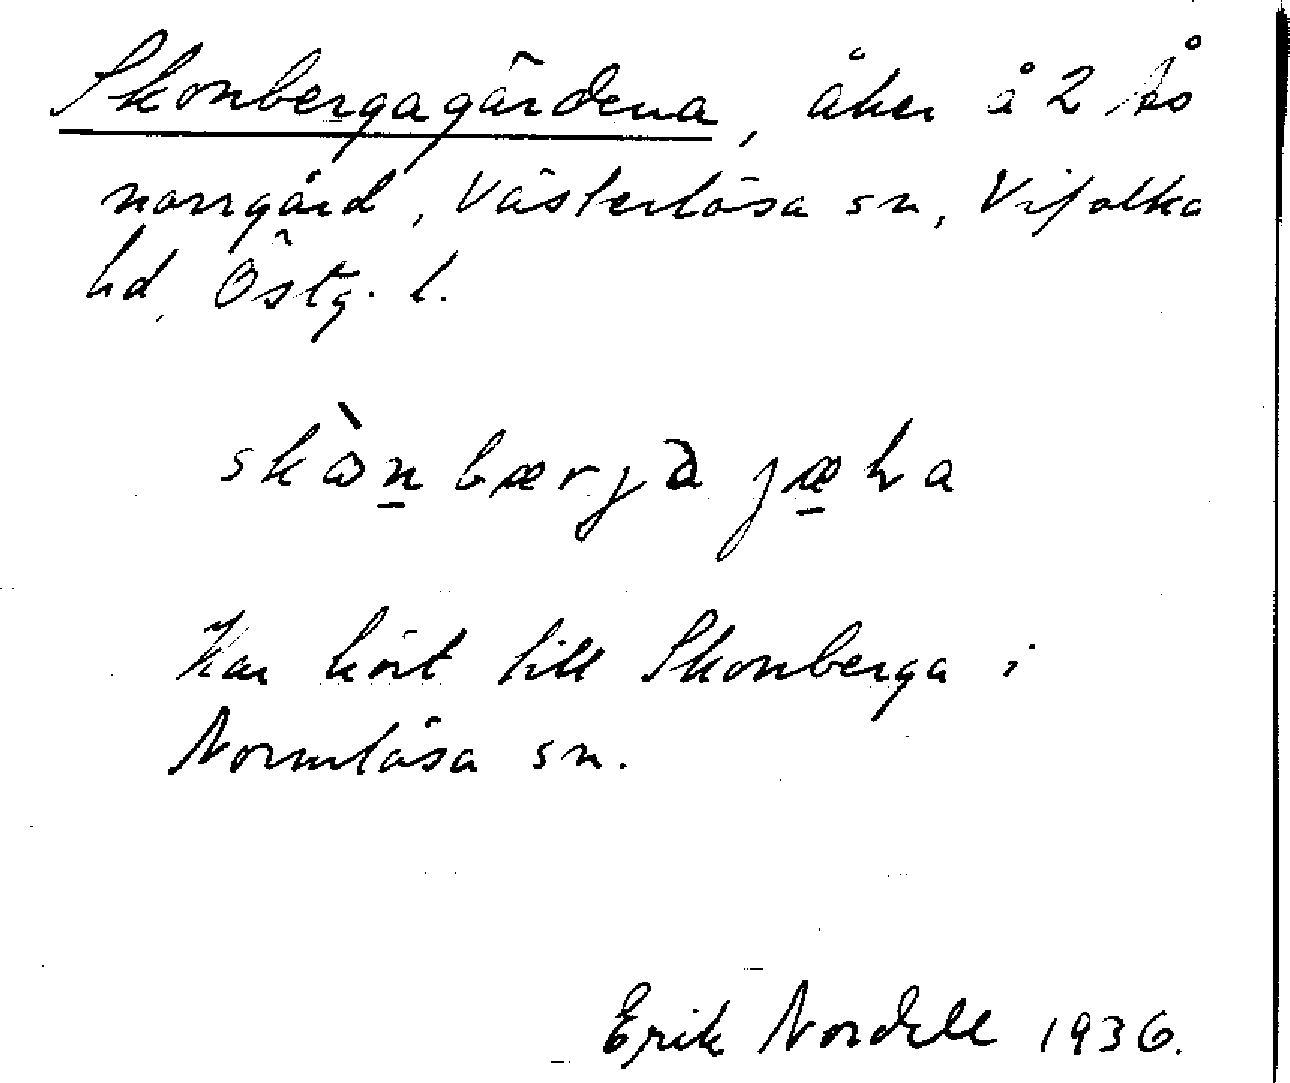 Skonbergagärdena, åker å 2 Ås
norrgård, Västerlösa sn, Vifolka
hd, Östg. l.
skònbærjajæka
Har hört till Skonberga i
Normlösa sn.
Erik Nordell 1936.